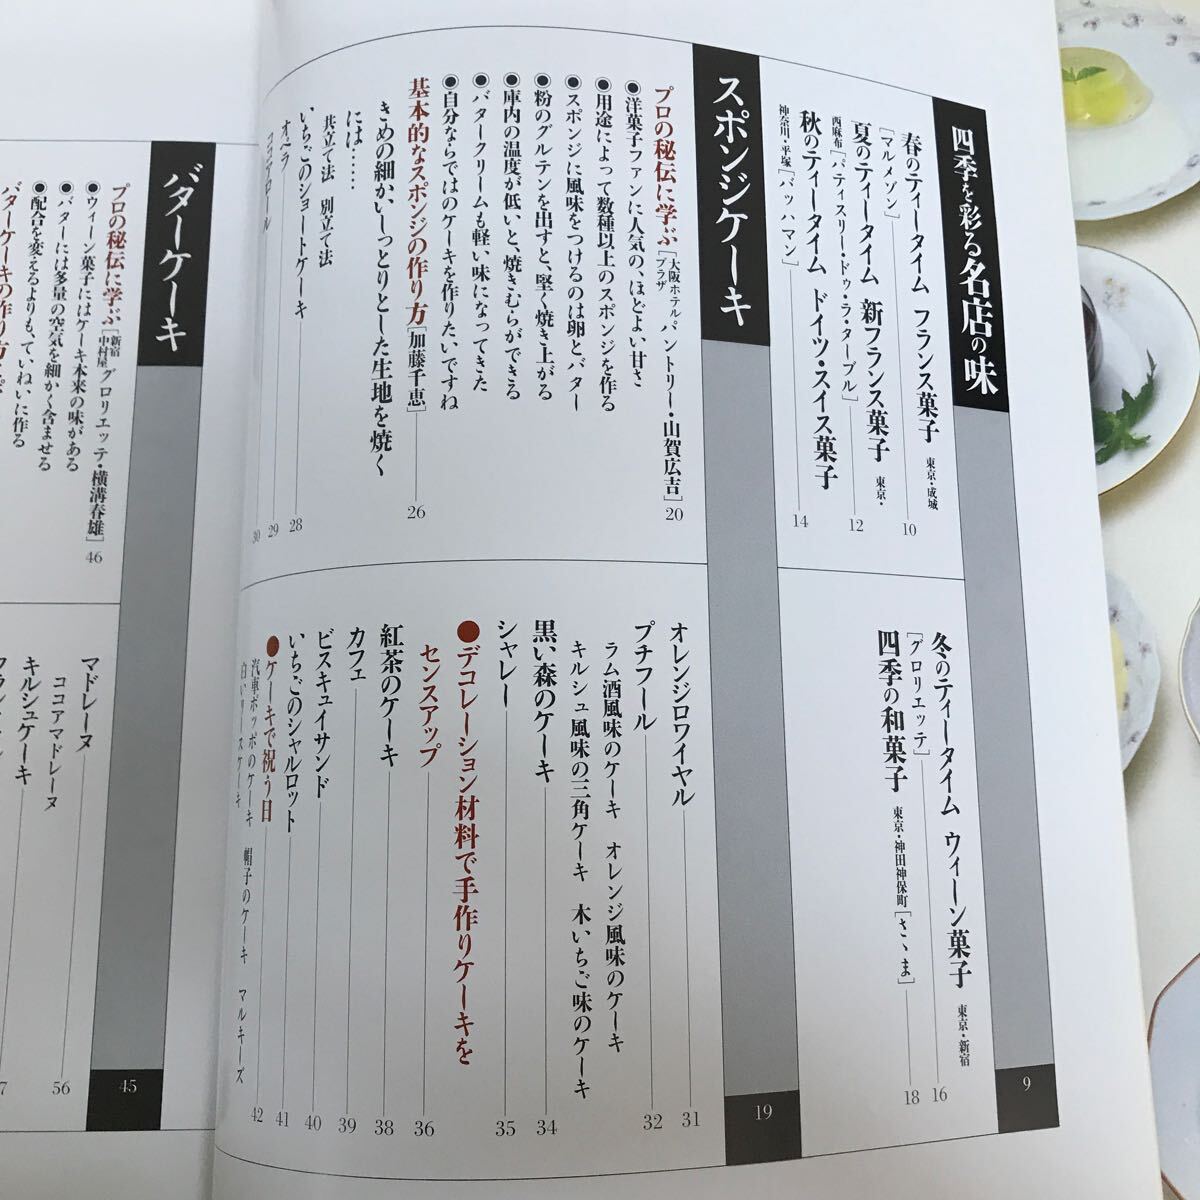 四季を彩る名店の味
9
春のティータイム フランス菓子 東京・成城
[マルメゾン]
10
夏のティータイム 新フランス菓子 東京・
西麻布[パティスリー・ドゥ・ラ・ターブル]
12
秋のティータイム ドイツ・スイス菓子
神奈川・平塚[バッハマン]
14
冬のティータイム ウィーン菓子 東京・新宿
[グロリエッテ]
16
四季の和菓子 東京・神田神保町[さゝま]
18
スポンジケーキ
19
プロの秘伝に学ぶ[大阪ホテルプラザ パントリー・山賀広吉]
20
◉洋菓子ファンに人気の、ほどよい甘さ
◉用途によって数種以上のスポンジを作る
◉スポンジに風味をつけるのは卵とバター
◉粉のグルテンを出すと、堅く焼き上がる
◉庫内の温度が低いと、焼きむらができる
◉バタークリームも軽い味になってきた
◉自分ならではのケーキを作りたいですね
基本的なスポンジの作り方[加藤千恵]
26
きめの細かいしっとりとした生地を焼く
には……
共立て法 別立て法
いちごのショートケーキ
28
オペラ
29
30
オレンジロワイヤル
31
プチフール
32
ラム酒風味のケーキ オレンジ風味のケーキ
キルシュ風味の三角ケーキ 木いちご味のケーキ
黒い森のケーキ
34
シャレー
35
●デコレーション材料で手作りケーキを
センスアップ
36
紅茶のケーキ
38
カフェ
39
ビスキュイサンド
40
いちごのシャルロット
41
●ケーキで祝う日
42
汽車ポッポのケーキ 帽子のケーキ マルキーズ
バターケーキ
45
プロの秘伝に学ぶ[新宿中村屋 グロリエッテ・横溝春雄]
46
◉ウィーン菓子にはケーキ本来の味がある
◉バターには多量の空気を細かく含ませる
◉配合を変えるよりも、ていねいに作る
マドレーヌ
56
ココアマドレーヌ
キルシュケーキ